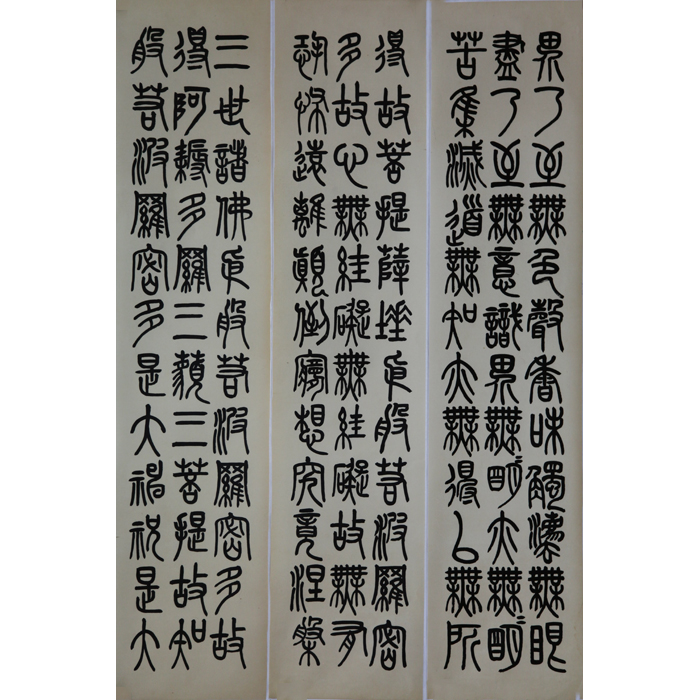 界乃至無色聲香味觸法無眼
盡乃至無意識界無明亦無明
苦集滅道無知亦無得以無所
得故菩提薩埵依般若波羅密
多故心無絓礙無絓礙故無有
恐怖遠離顛倒夢想究竟涅槃
三世諸佛依般若波羅密多故
得阿耨多羅三藐三菩提故知
般若波羅密多是大神祝是大